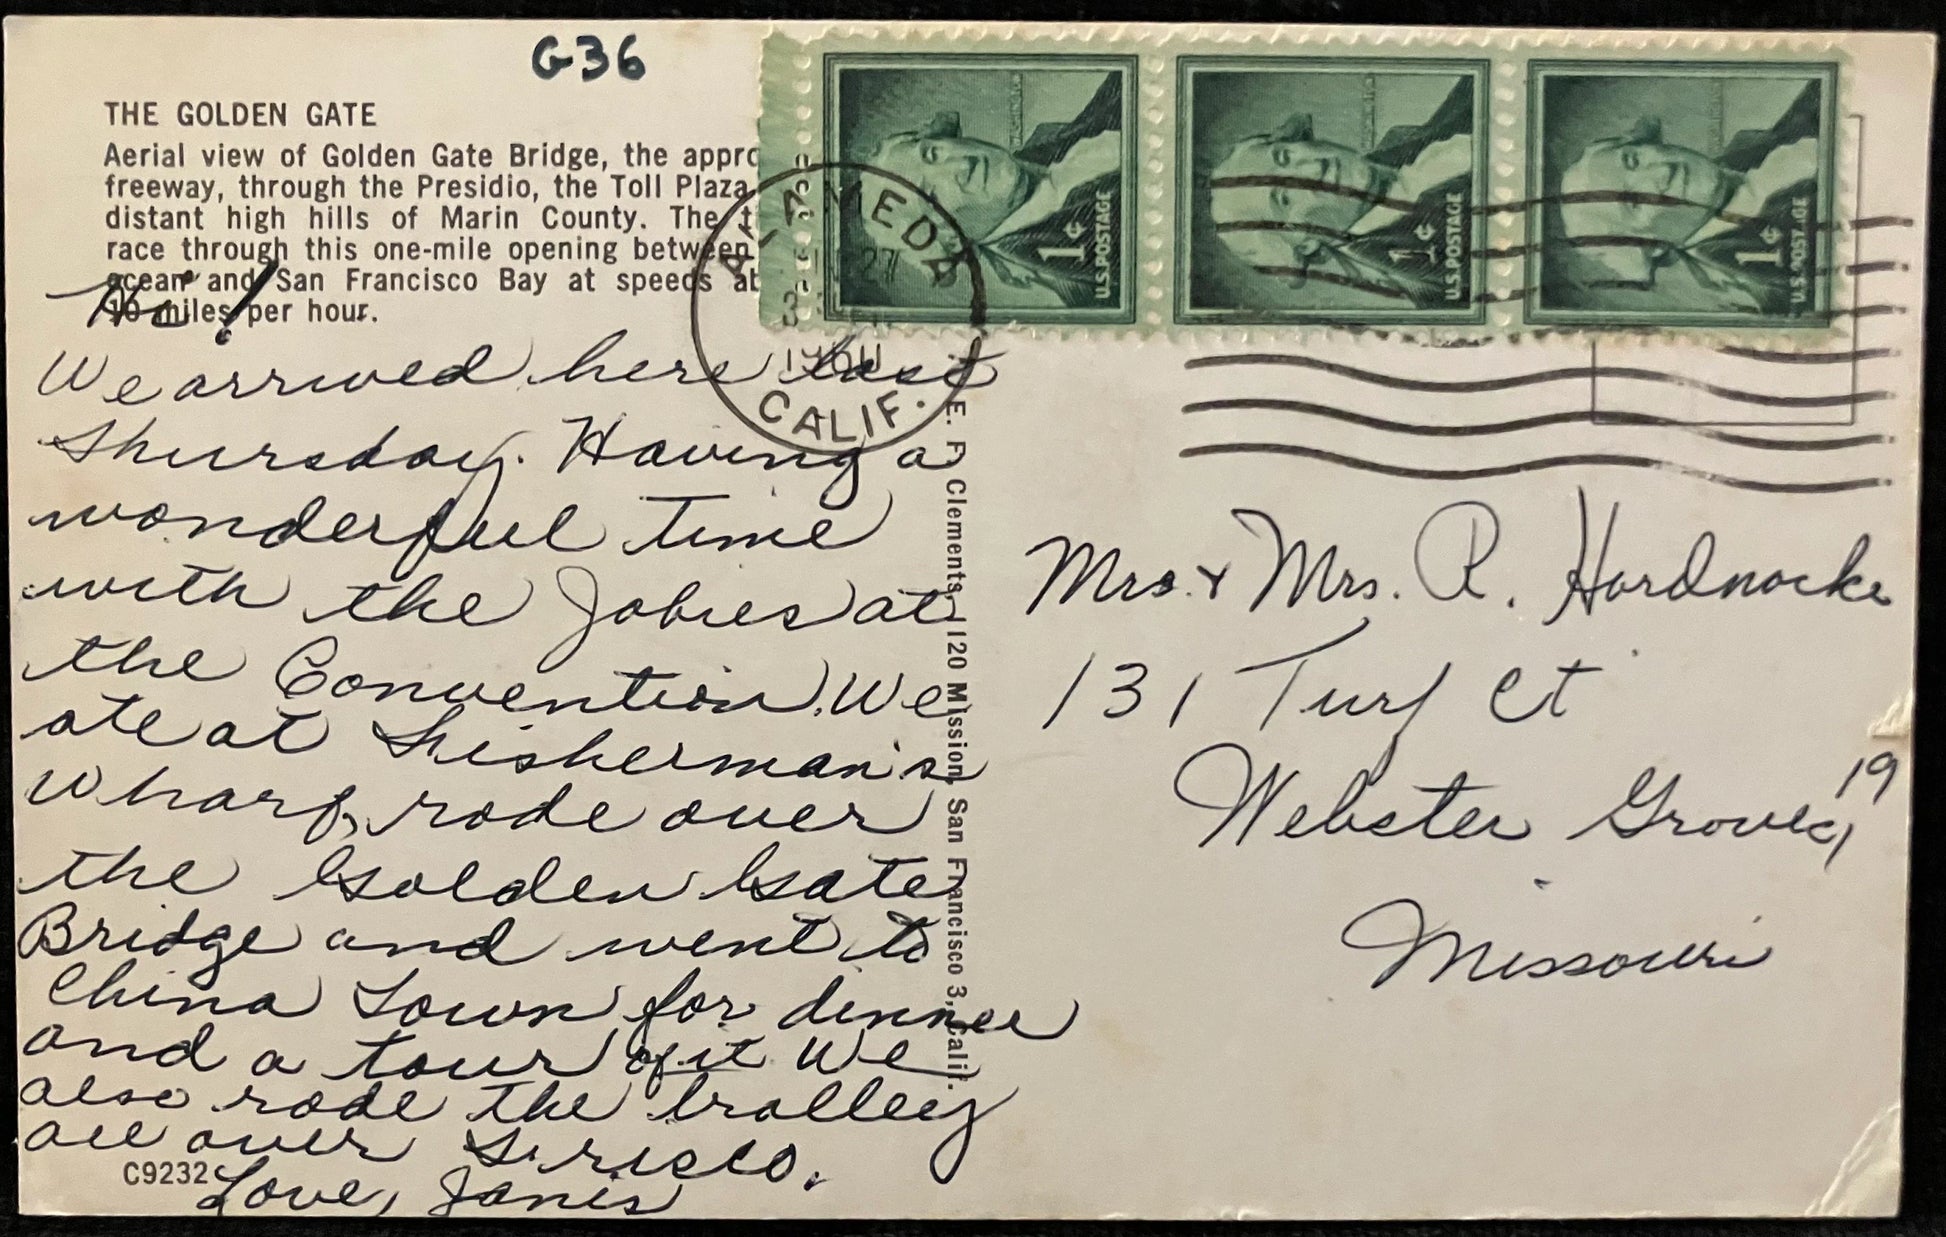 G36
THE GOLDEN GATE
Aerial view of Golden Gate Bridge, the appro
freeway, through the Presidio, the Toll Plaza
distant high hills of Marin County. The t
race through this one-mile opening between
ocean and San Francisco Bay at speeds ab
10 miles per hour.
Hi!
We arrived here last
Thursday. Having a
wonderful time
with the Jobies at
the Convention. We
ate at Fisherman's
Wharf, rode over
the Golden Gate
Bridge and went to
China Town for dinner
and a tour of it We
also rode the trolley
all over Frisco.
Love, Janis
C9232
E. F. Clements, 1120 Mission, San Francisco 3, Calif.
ALAMEDA
CALIF.
1¢ U.S. POSTAGE
1¢ U.S. POSTAGE
1¢ U.S. POSTAGE
Mrs. & Mrs. R.
131 Turf Ct
Webster Groves, 19
Missouri